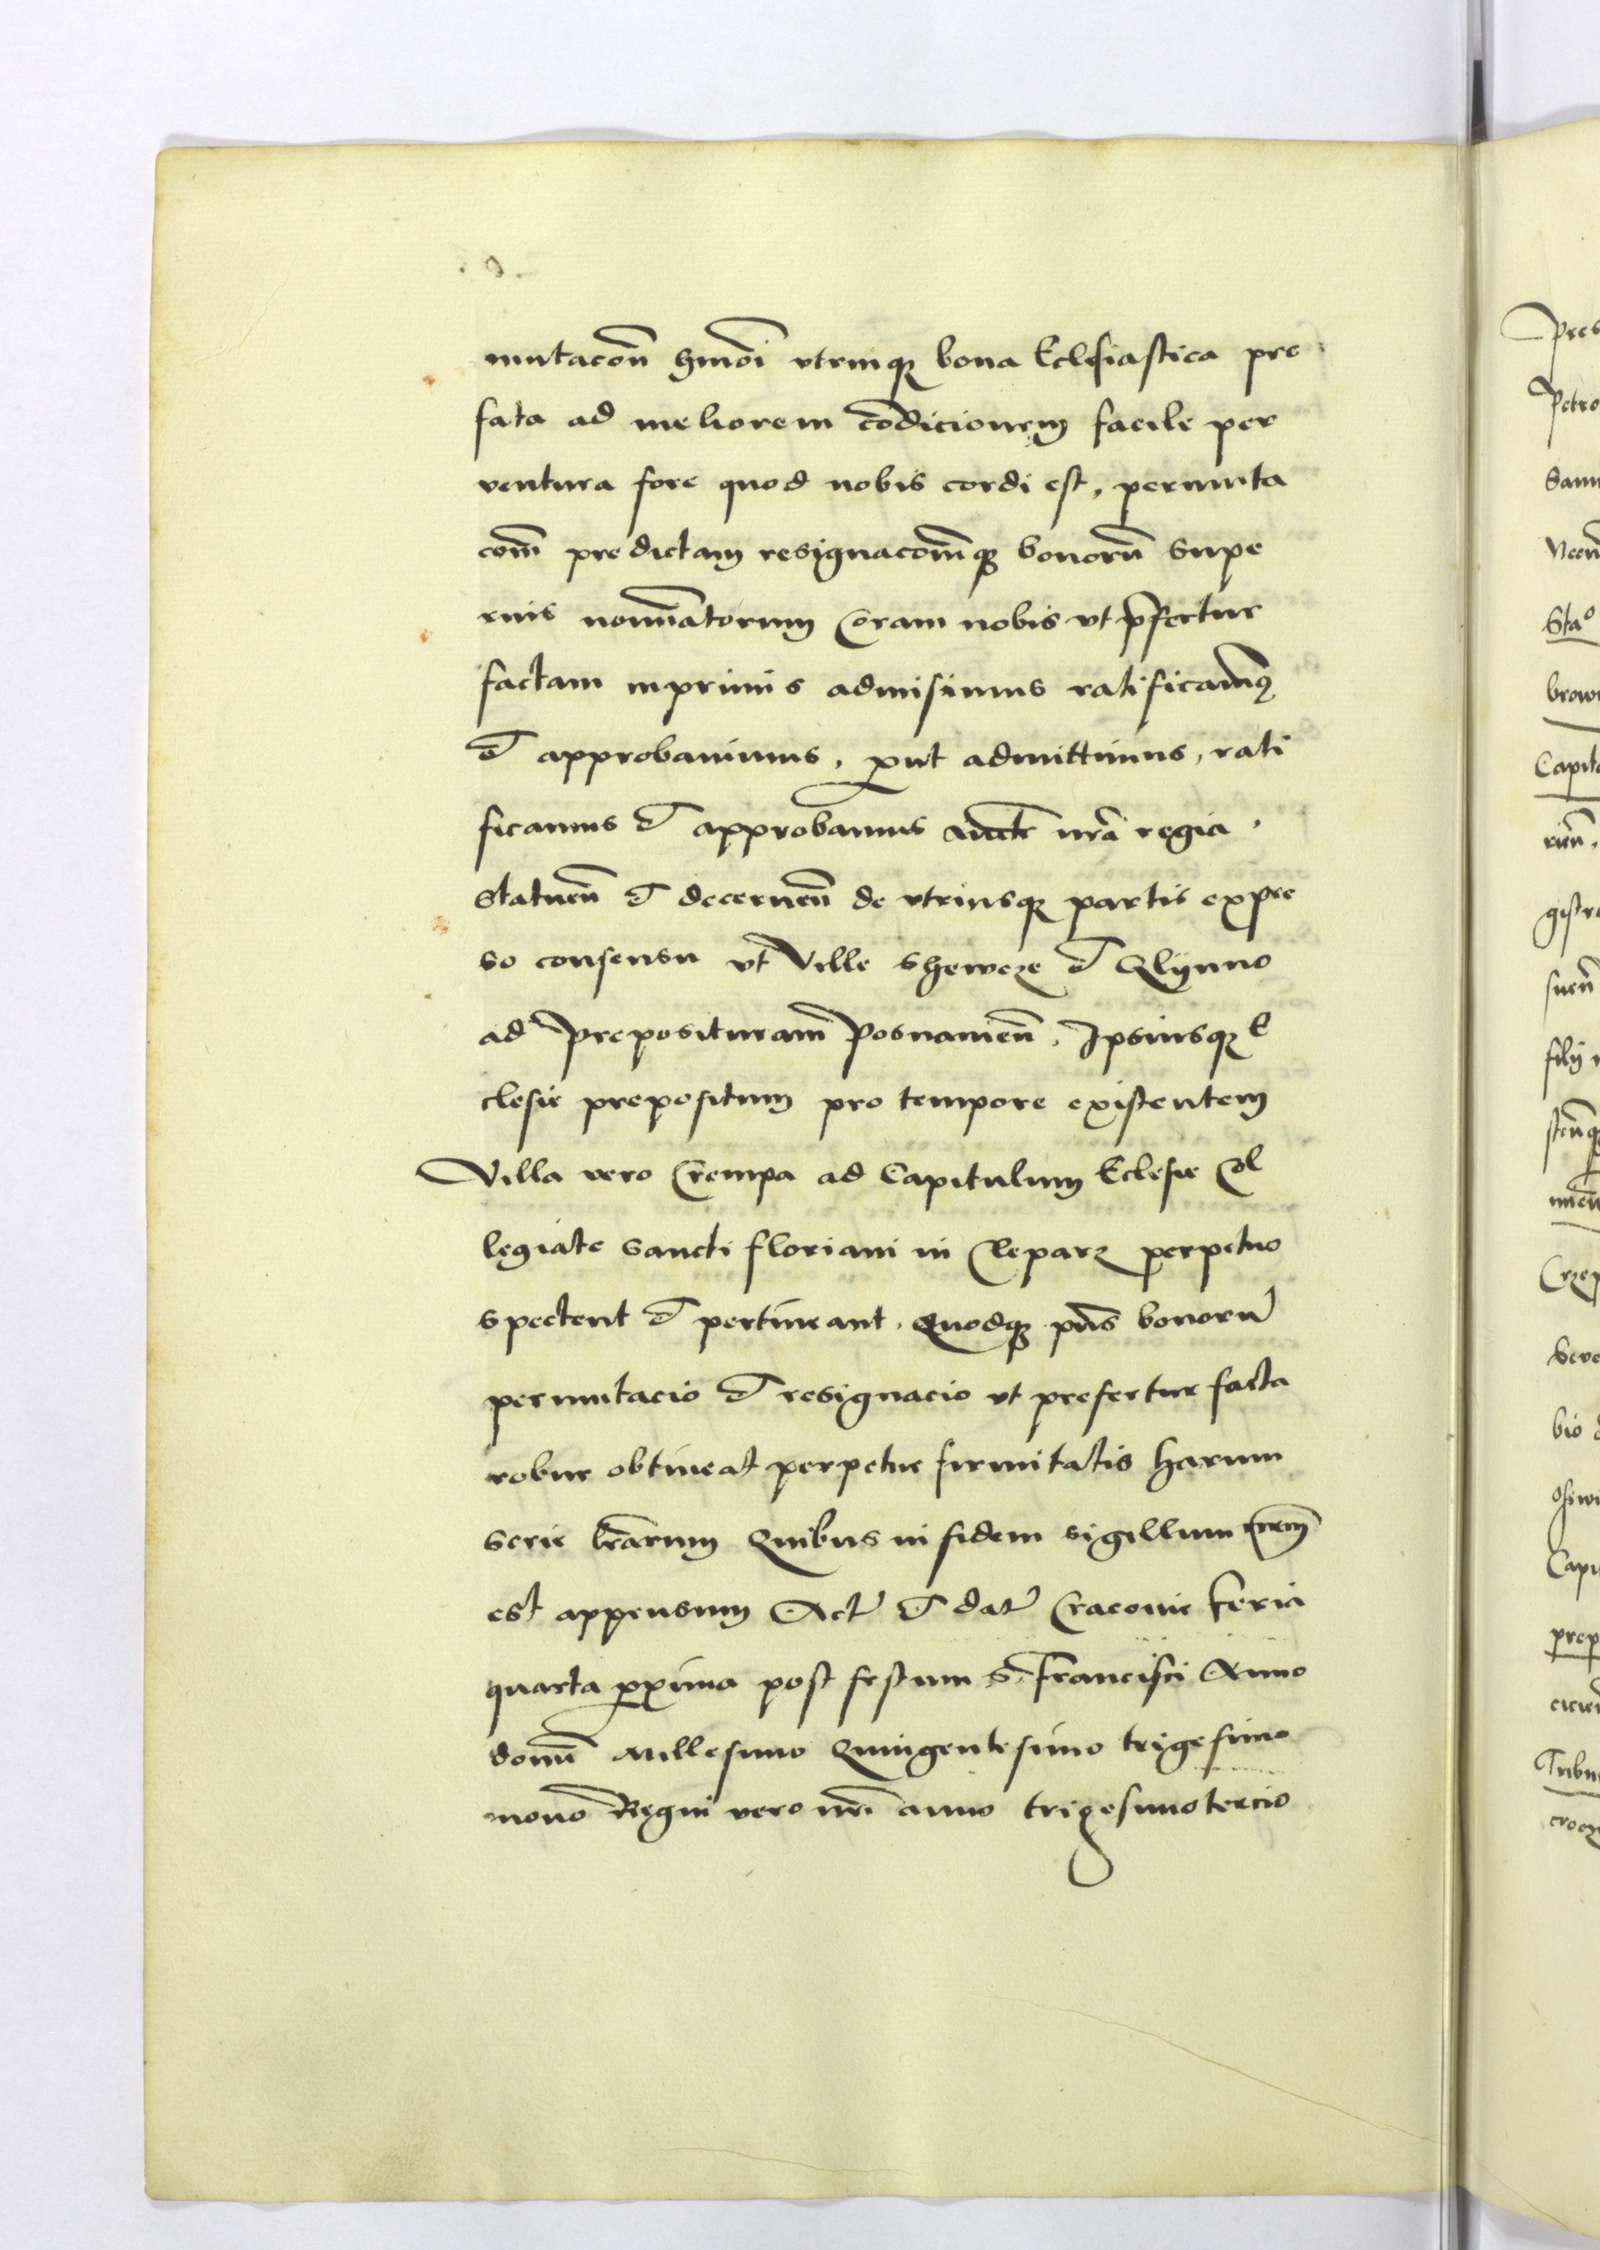 mutacoñ hmõi vtrinq bona Ecclesiastica pre
fata ad meliorem cõdicionem facile per
ventura fore quod nobis cordi est, permuta
com̃ predictam resignacom̃q bonorũ supe
rius nominatorum Coram nobis vt p̃fertur
factam inprimis admisimus ratificavimus
et approbavimus, put admittimus, rati
ficamus et approbamus nrã regia
statueñ et decerneñ de vtriusq partis expre
so consensu vt Ville et Glynno
ad Preposituram Posnanieñ. Ipsiusq E
clesie prepositum pro tempore existentem
Villa vero Crempa ad Capitulum Eclesie Col
legiate sancti floriani in Clepars perpetuo
spectent et pertineant. Quodq pñs bonorũ
permutacio et resignacio vt prefertur facta
robur obtineat perpetue firmitatis harum
serie lrãrum Quibus in fidem sigillum nr̃m
est appensum Act et dat Cracovie feria
quarta pxima post festum s. Francisci Anno
domi Millesimo Quingentesimo trigesimo
nono Regni vero nri anno trigesimotercio
Pres
Petro
Sta⁰
Capit
gistr